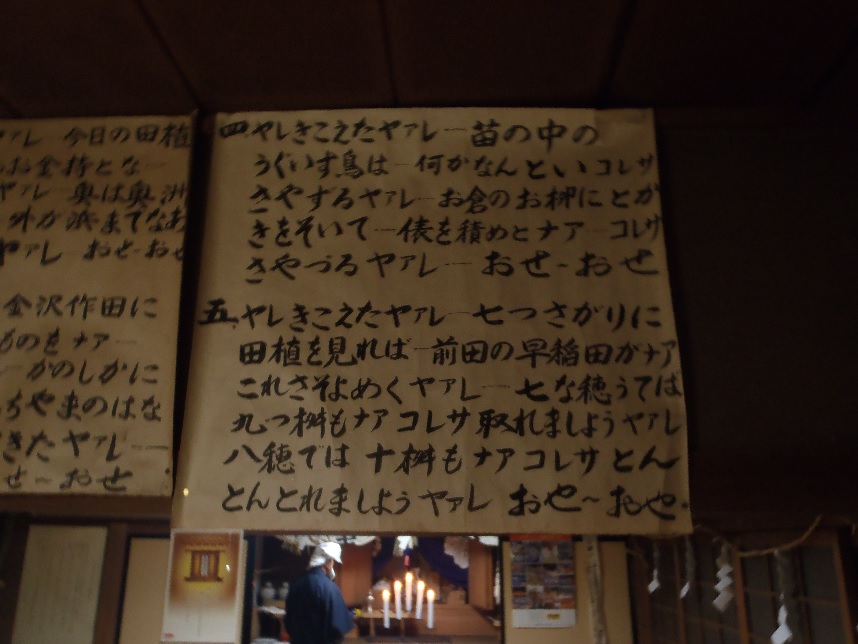 今日の田植
お金持となー
奥は奥洲
外が浜までなあ
ヤァレ おせ〜おせ
金沢作田に
ものをナァー
かのしかに
ちやまのはな
きたヤァレー
せ〜おせ
四.ヤレきこえたヤァレー苗の中の
うぐいす鳥は一何かなんといコレサ
さやずるヤァレーお倉のお桝にとが
きをそいて一俵を積めとナアーコレサ
さやづるヤァレーおせ〜おせ
五.ヤレきこえたヤァレー七つさがりに
田植を見れば一前田の早稲田がナア
これさそよめくヤァレー七な穂うてば
九つ桝もナアコレサ取れましようヤァレ
八穂では十桝もナアコレサとん
とんとれましようヤァレ おせ〜おせ.